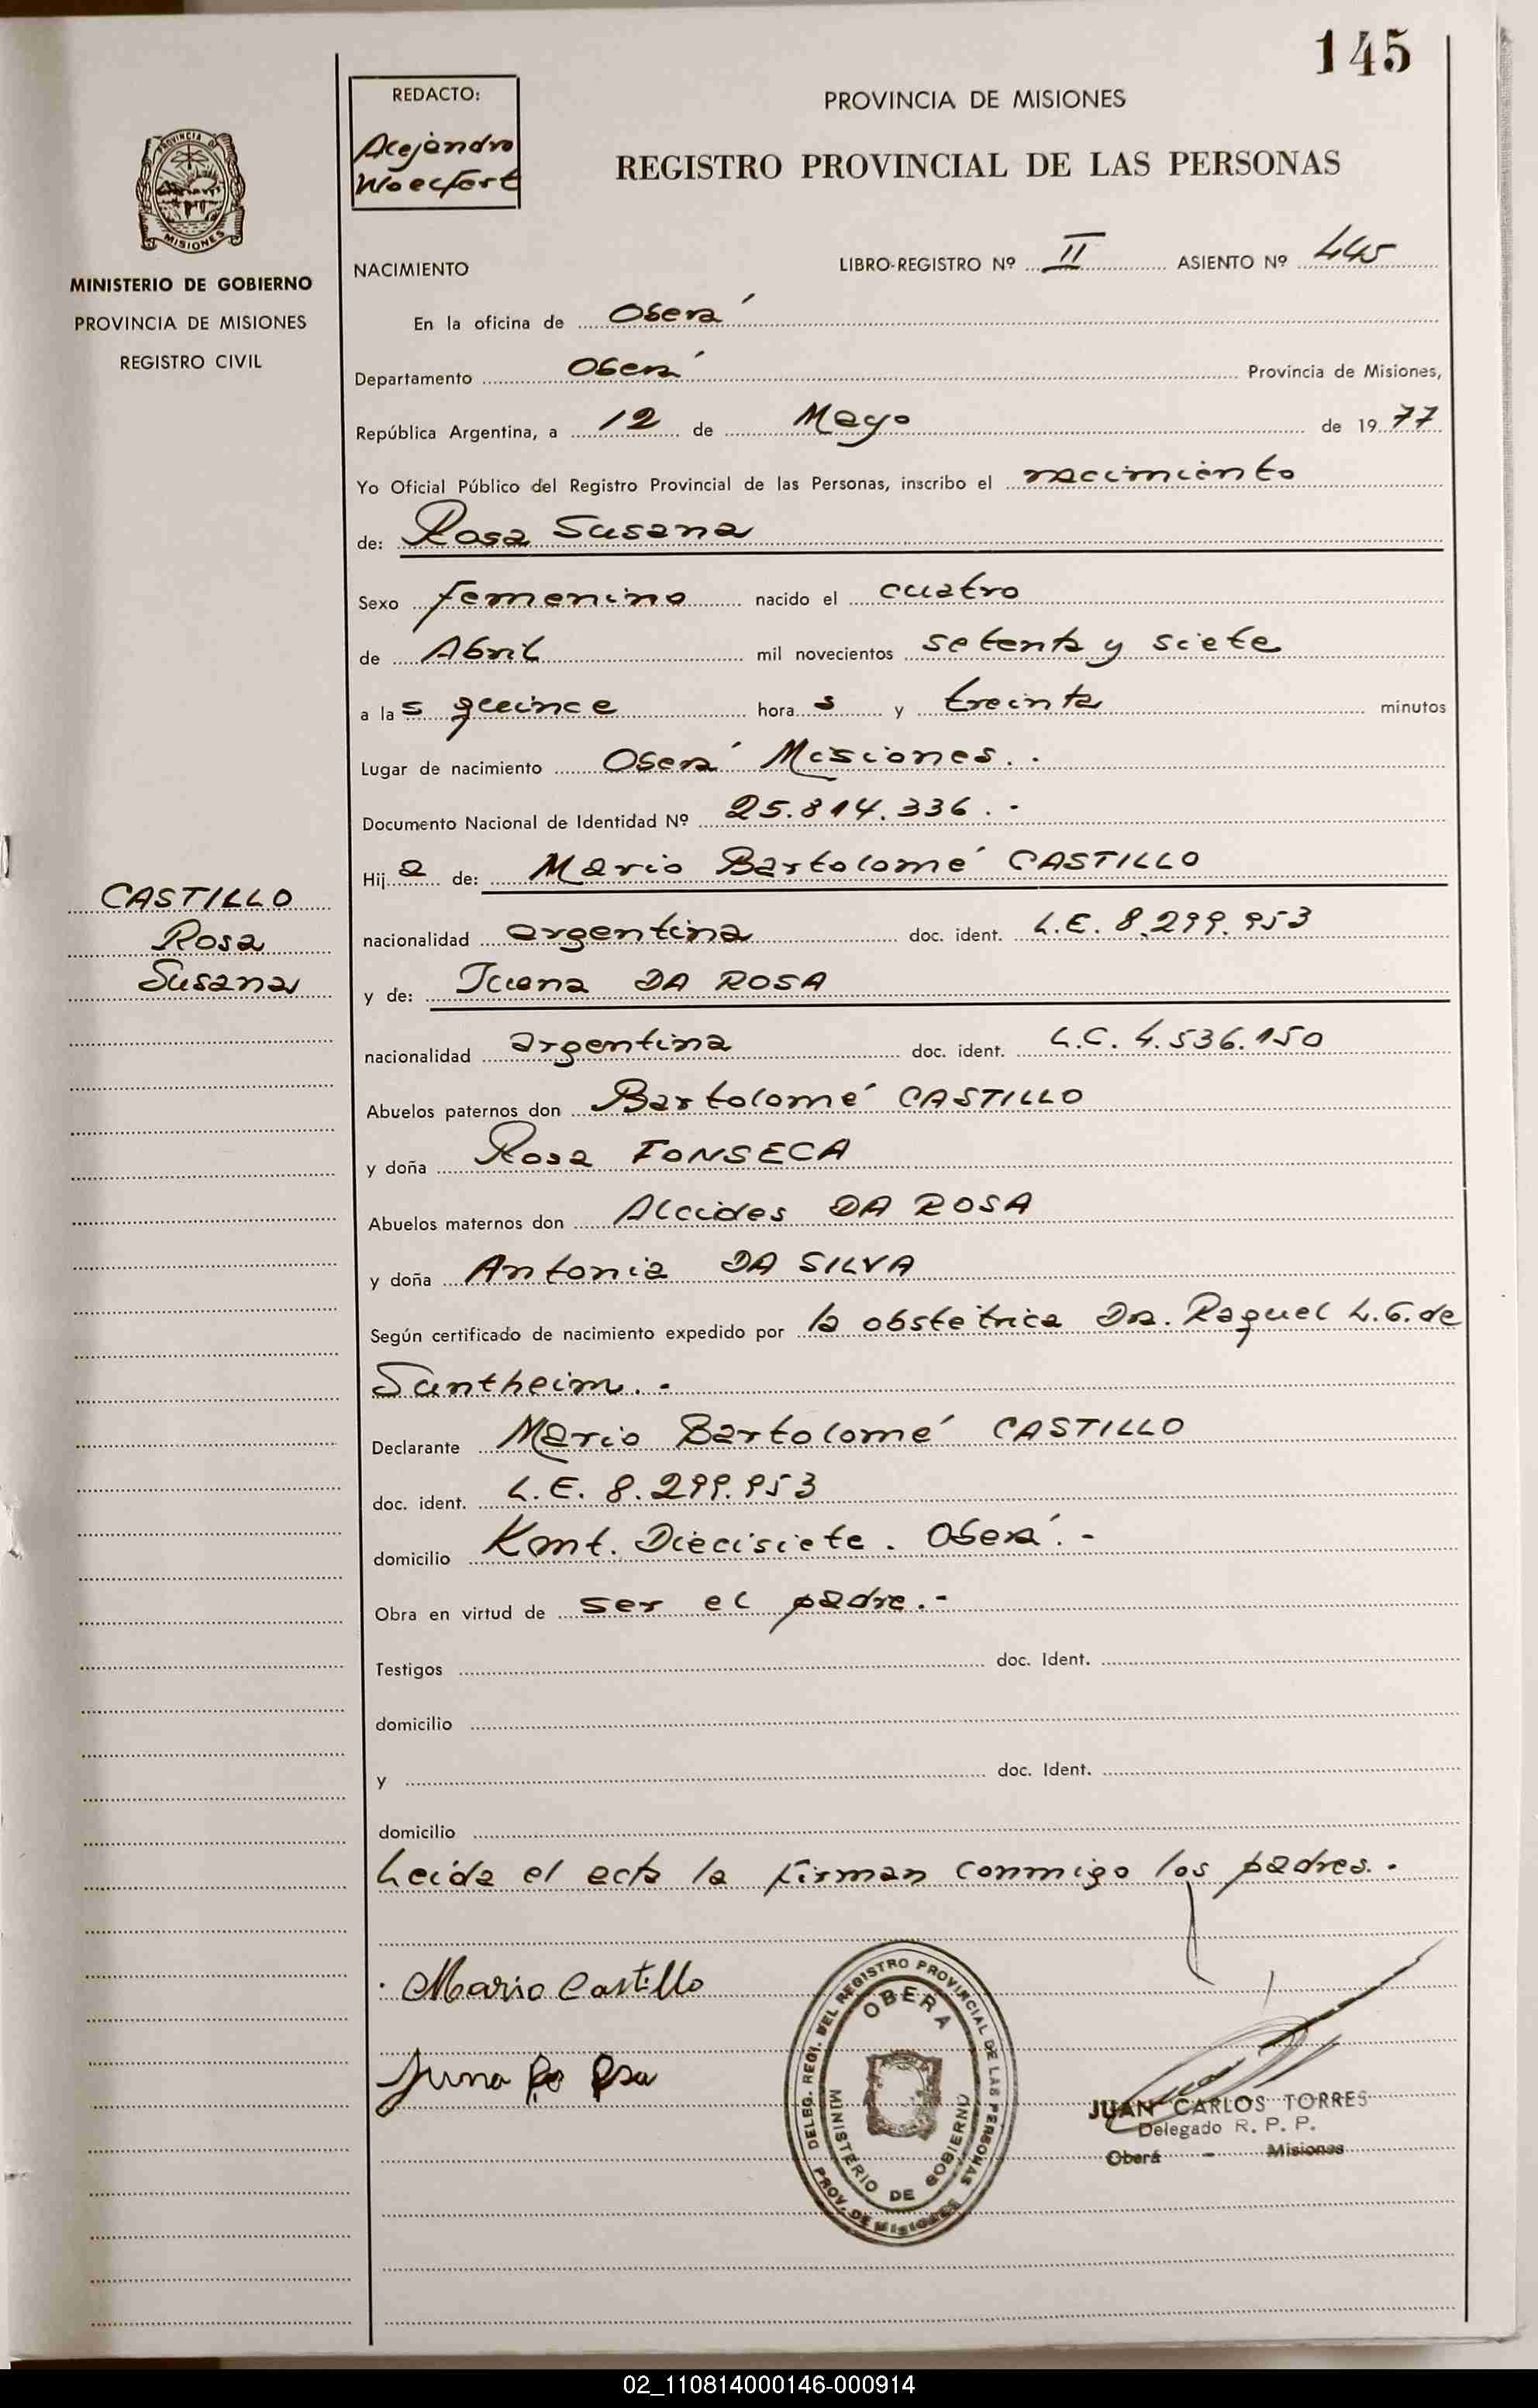 145
REDACTO:
Alejandro
Woelfert
PROVINCIA DE MISIONES
REGISTRO PROVINCIAL DE LAS PERSONAS
PROVINCIA DE
MISIONES
MINISTERIO DE GOBIERNO
PROVINCIA DE MISIONES
REGISTRO CIVIL
NACIMIENTO LIBRO-REGISTRO Nº II ASIENTO Nº 445
En la oficina de Oberá
Departamento Oberá Provincia de Misiones,
República Argentina, a 12 de Mayo de 1977
Yo Oficial Público del Registro Provincial de las Personas, inscribo el nacimiento
de: Rosa Susana
Sexo femenino nacido el cuatro
de Abril mil novecientos setenta y siete
a las quince horas y treinta minutos
Lugar de nacimiento Oberá Misiones. -
Documento Nacional de Identidad Nº 25.814.336. -
Hija de: Mario Bartolomé CASTILLO
CASTILLO
Rosa
Susana
nacionalidad argentina doc. ident. L.E. 8.299.953
y de: Juana DA ROSA
nacionalidad argentina doc. ident. L.C. 4.536.150
Abuelos paternos don Bartolomé CASTILLO
y doña Rosa FONSECA
Abuelos maternos don Alcides DA ROSA
y doña Antonia DA SILVA
Según certificado de nacimiento expedido por la obstetrica Dra. Raquel L.G. de
Suntheim. -
Declarante Mario Bartolomé CASTILLO
doc. ident. L.E. 8.299.953
domicilio Kmt. Diecisiete. Oberá. -
Obra en virtud de ser el padre. -
Testigos doc. Ident.
domicilio
y doc. Ident.
domicilio
Leída el acta la firman conmigo los padres. -
Mario Castillo
DELEG. REGI. DEL REGISTRO PROVINCIAL DE LAS PERSONAS
OBERA
MINISTERIO DE GOBIERNO
PROV. DE MISIONES
JUAN CARLOS TORRES
Delegado R. P. P.
Oberá - Misiones
02_110814000146-000914